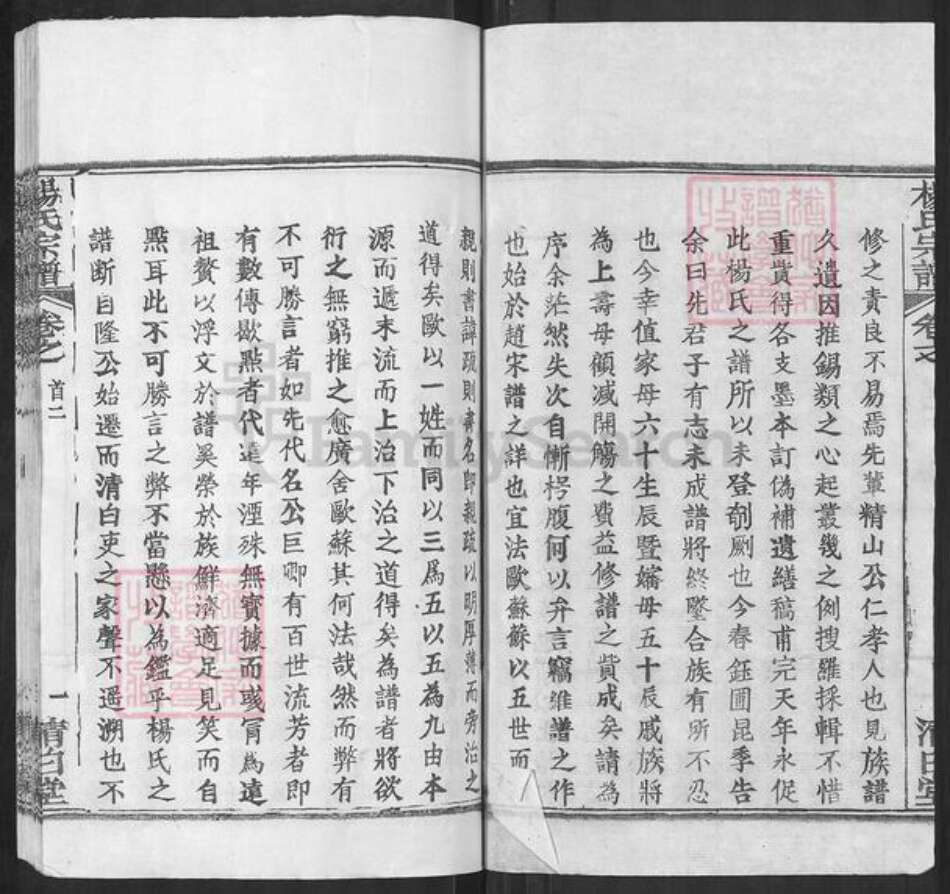 楊氏宗譜
卷之
清白堂
修之責良不易焉先輩精山公仁孝人也見族譜
久遺因推錫類之心起叢幾之例搜羅採輯不惜
重貲得各支墨本訂偽補遺繕稿甫完天年永促
此楊氏之譜所以未登剞劂也今春鈺圃昆季告
余曰先君子有志未成譜將終墜合族有所不忍
也今幸值家母六十生辰暨嬸母五十辰戚族將
為上壽母顧減開觴之費益修譜之貲成矣請為
序余茫然失次自慚枵腹何以弁言竊維譜之作
也始於趙宋譜之詳也宜法歐蘇蘇以五世而
親則書諱疏則書名即親疏以明厚薄而旁治之
道得矣歐以一姓而同以三爲五以五為九由本
源而遞末流而上治下治之道得矣為譜者將欲
衍之無窮推之愈廣舍歐蘇其何法哉然而弊有
不可勝言者如先代名公巨卿有百世流芳者即
有數傳歇㸃者代遠年湮殊無實據而彧冐為遠
祖贅以浮文於譜奚榮於族鮮濟適足見笑而自
㸃耳此不可勝言之弊不當懸以為鑑乎楊氏之
譜斷自隆公始遷而清白吏之家聲不遥溯也不
楊氏宗譜
卷之
首二
一
清白堂
FamilySearch